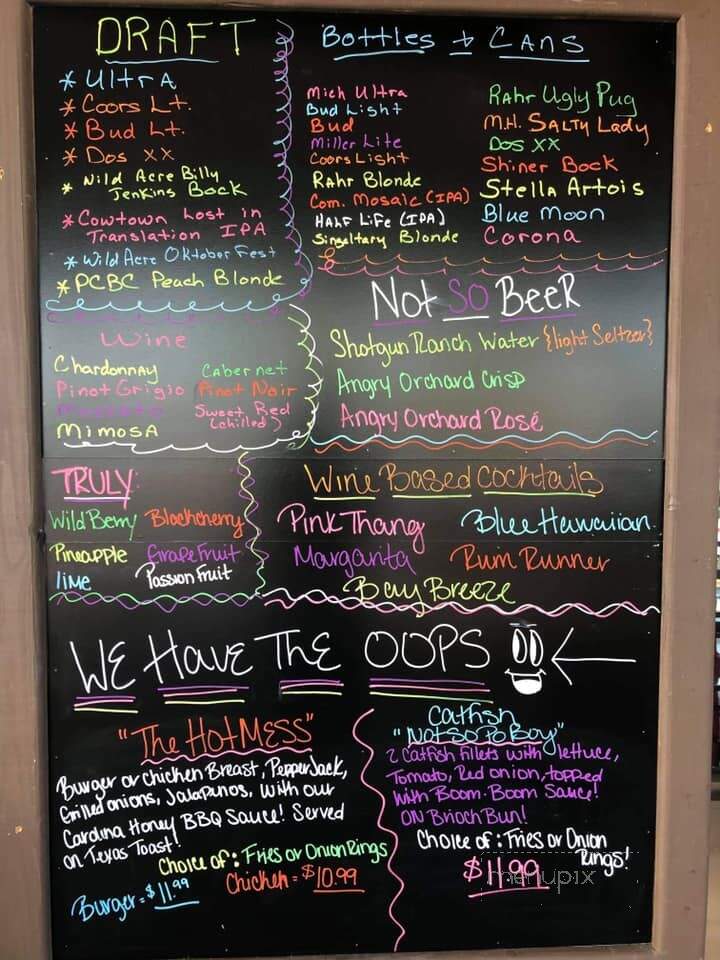 DRAFT
* Ultra
* Coors Lt.
* Bud Lt.
* Dos XX
* Wild Acre Billy
Jenkins Bock
* Cowtown Lost in
Translation IPA
* Wild Acre Oktober Fest
* PCBC Peach Blonde
Bottles + Cans
Mich Ultra
Bud Light
Bud
Miller Lite
Coors Light
Rahr Blonde
Com. Mosaic (IPA)
Half Life (IPA)
Singeltary Blonde
Rahr Ugly Pug
M.H. Salty Lady
Dos XX
Shiner Bock
Stella Artois
Blue Moon
Corona
Wine
Chardonnay
Pinot Grigio
Moscato
Mimosa
Cabernet
Pinot Noir
Sweet Red
(chilled)
Not SO BeeR
Shotgun Ranch Water {light Seltzer}
Angry Orchard Crisp
Angry Orchard Rosé
TRULY
Wild Berry Blackcherry
Pineapple GrapeFruit
lime Passion Fruit
Wine Based Cocktails
Pink Thang Blue Hawaiian
Margarita Rum Runner
Bay Breeze
WE HAVE THE OOPS
"The Hot MESS"
Burger or chicken Breast, PepperJack,
Grilled onions, Jalapunos, with our
Carolina Honey BBQ Sauce! Served
on Texas Toast!
Choice of: Fries or Onion Rings
Burger = $11.99 Chicken = $10.99
Catfish
"Not So Po Boy"
2 Catfish fillets with lettuce,
Tomato, Red onion, topped
with Boom-Boom Sauce!
ON Brioch Bun!
Choice of: Fries or Onion
Rings!
$11.99
menupix